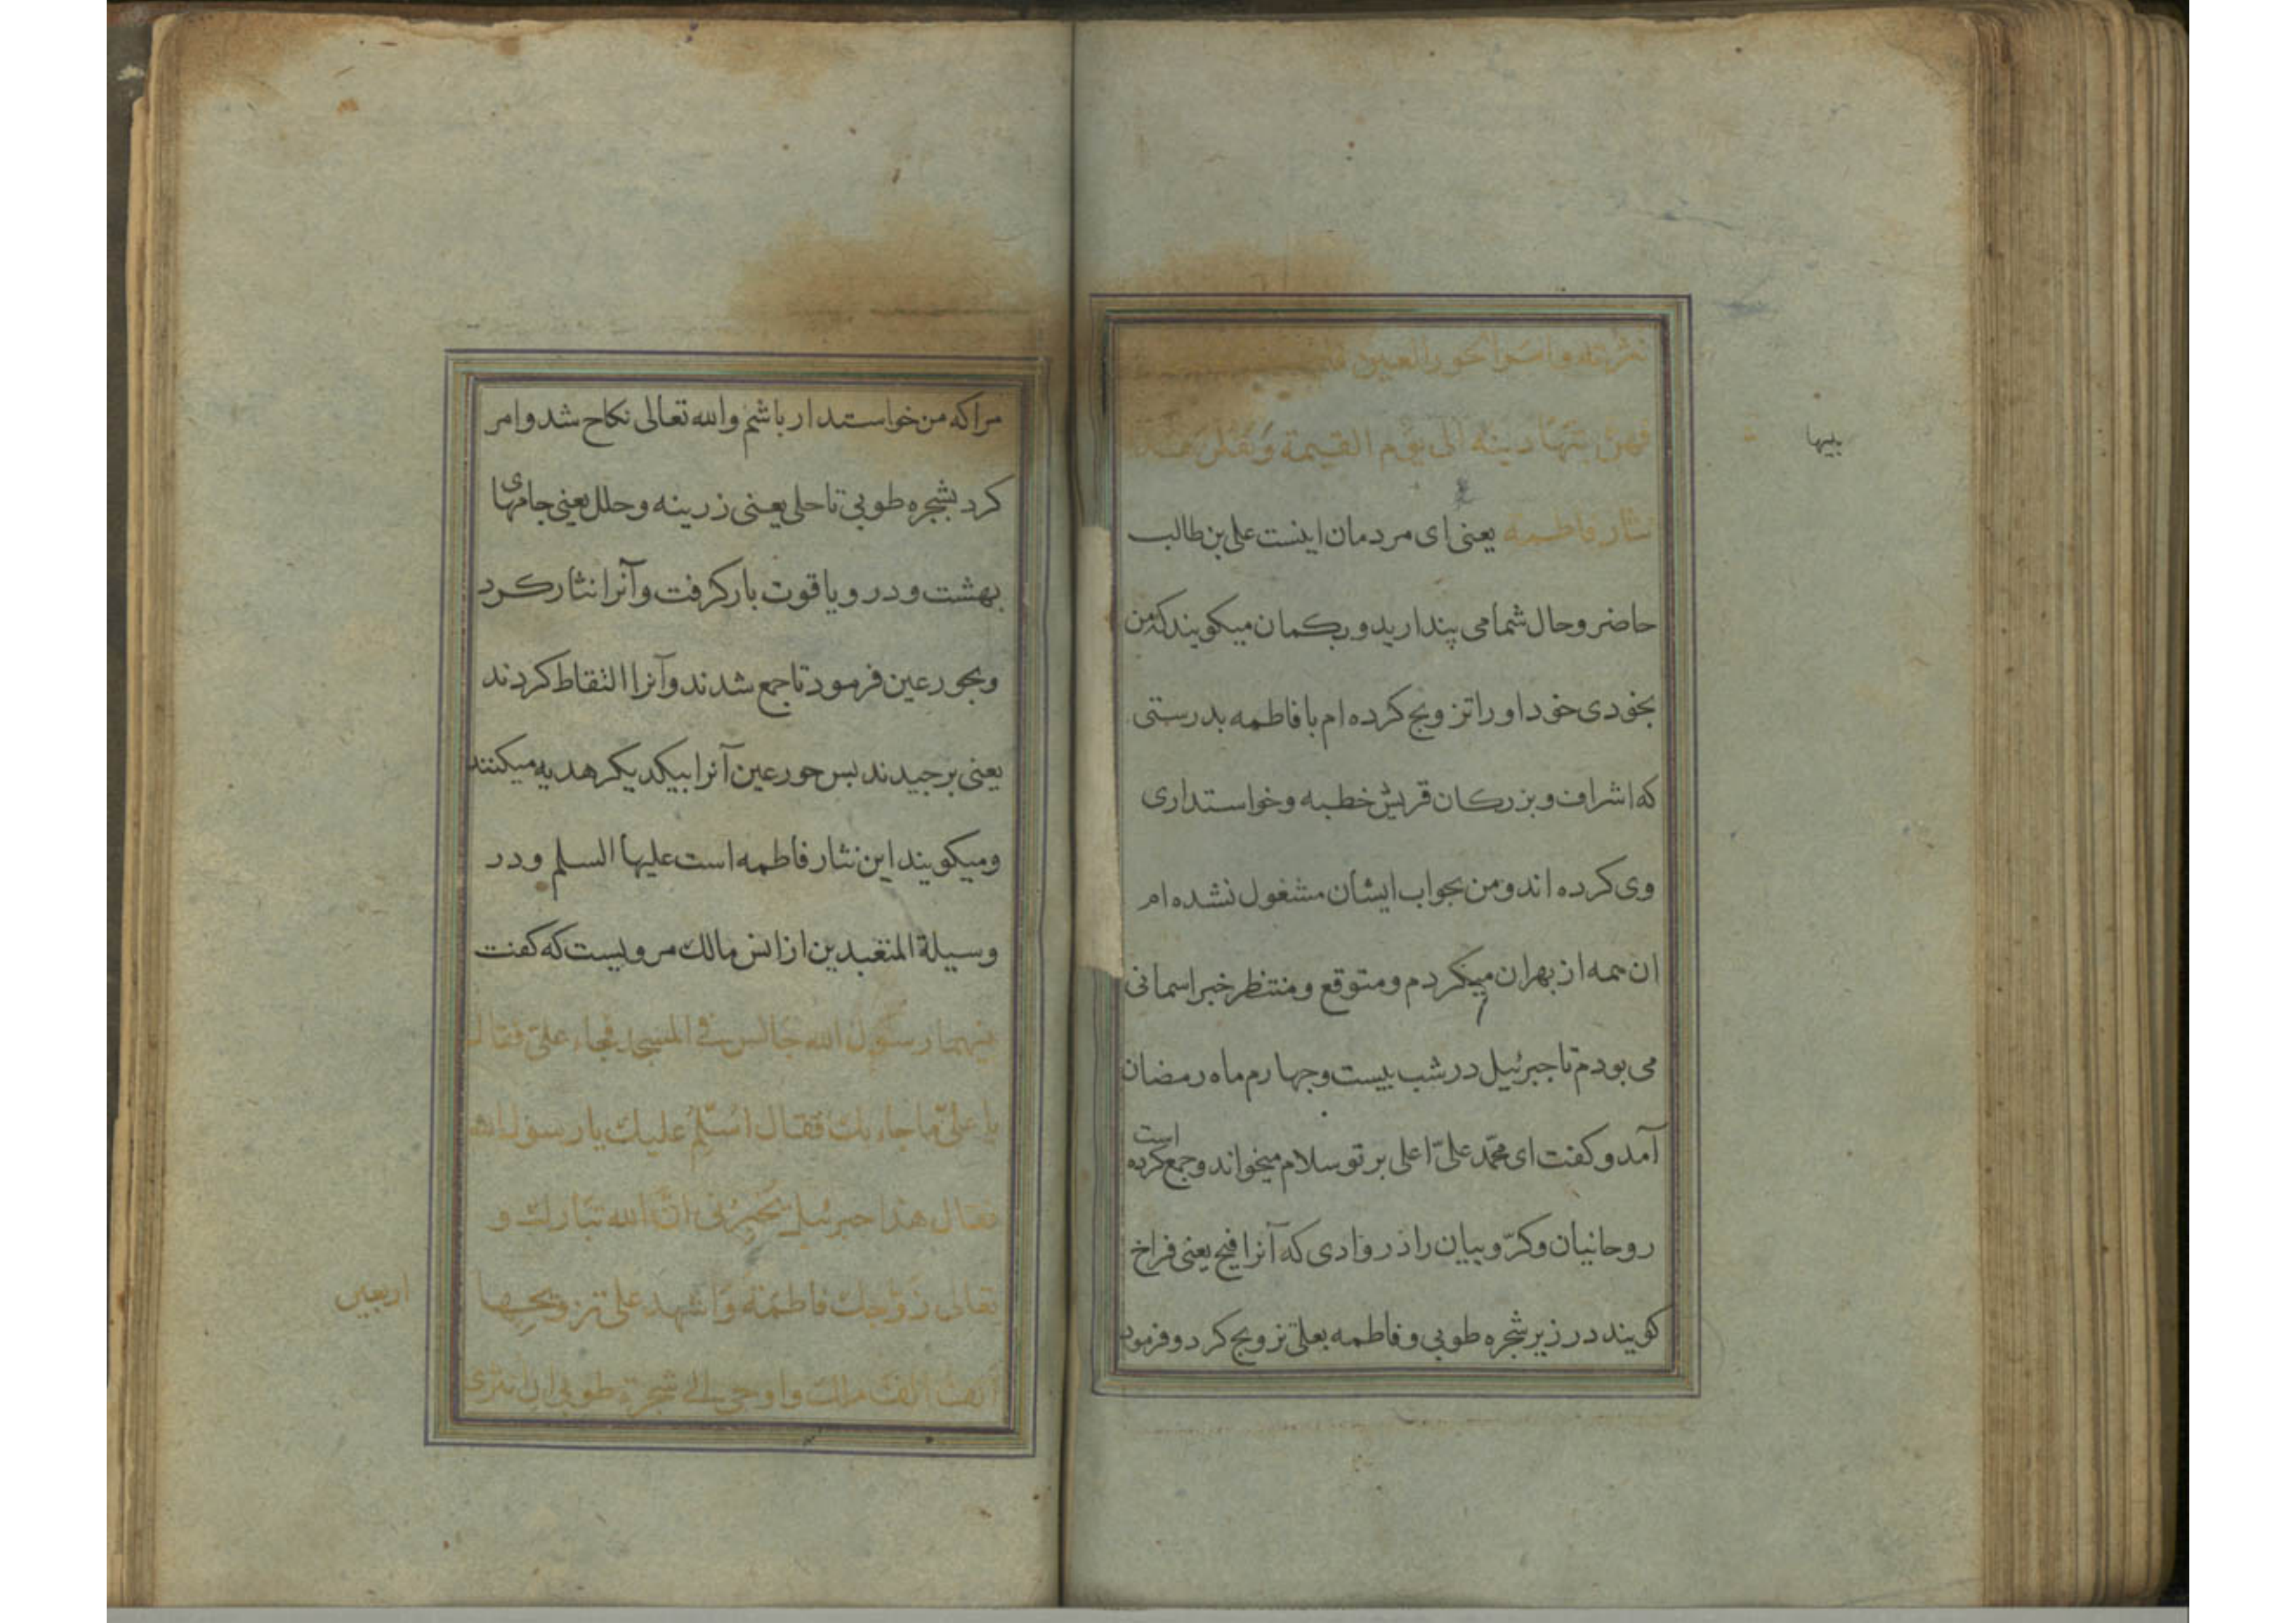 نثرته وامر الحور العین
فهن یتهادینه الی یوم القیمة ویقلن هذا
بینها
نثار فاطمه یعنی ای مردمان اینست علی بن طالب
حاضر وحال شما می پندارید و بکمان میکویند که من
بخودی خود او را تزویج کرده ام با فاطمه بدرستی
که اشراف و بزرکان قریش خطبه وخواستداری
وی کرده اند ومن بجواب ایشان مشغول نشده ام
ان همه از بهر ان میکردم ومتوقع ومنتظر خبر اسمانی
می بودم تا جبرئیل در شب بیست وچهارم ماه رمضان
آمد وکفت ای محمد علیّ اعلی بر تو سلام میخواند وجمع کرده است
روحانیان وکرّوبیان را در وادی که آنرا افیح یعنی فراخ
کویند در زیر شجره طوبی وفاطمه بعلی تزویج کرد وفرمود
مرا که من خواستدار باشم والله تعالی نکاح شد وامر
کرد بشجره طوبی تا حلی یعنی زرینه وحلل یعنی جامهای
بهشت ودر ویاقوت بار کرفت وآنرا نثار کرد
وبحور عین فرمود تا جمع شدند وآنرا التقاط کردند
یعنی برچیدند بس حور عین آنرا بیکدیکر هدیه میکنند
ومیکویند این نثار فاطمه است علیها السلم ودر
وسیلة المتعبدین از انس مالک مرویست که کفت
بینهما رسول الله جالس فی المسجد فجاء علیّ فقال
یا علیّ ما جاء بك فقال اسلّم علیك یا رسول الله
فقال هذا جبرئیل یخبرنی انّ الله تبارك و
تعالی زوّجك فاطمة واشهد علی تزویجها
اربعین
الف الف ملك واوحی الی شجرة طوبی ان انثری